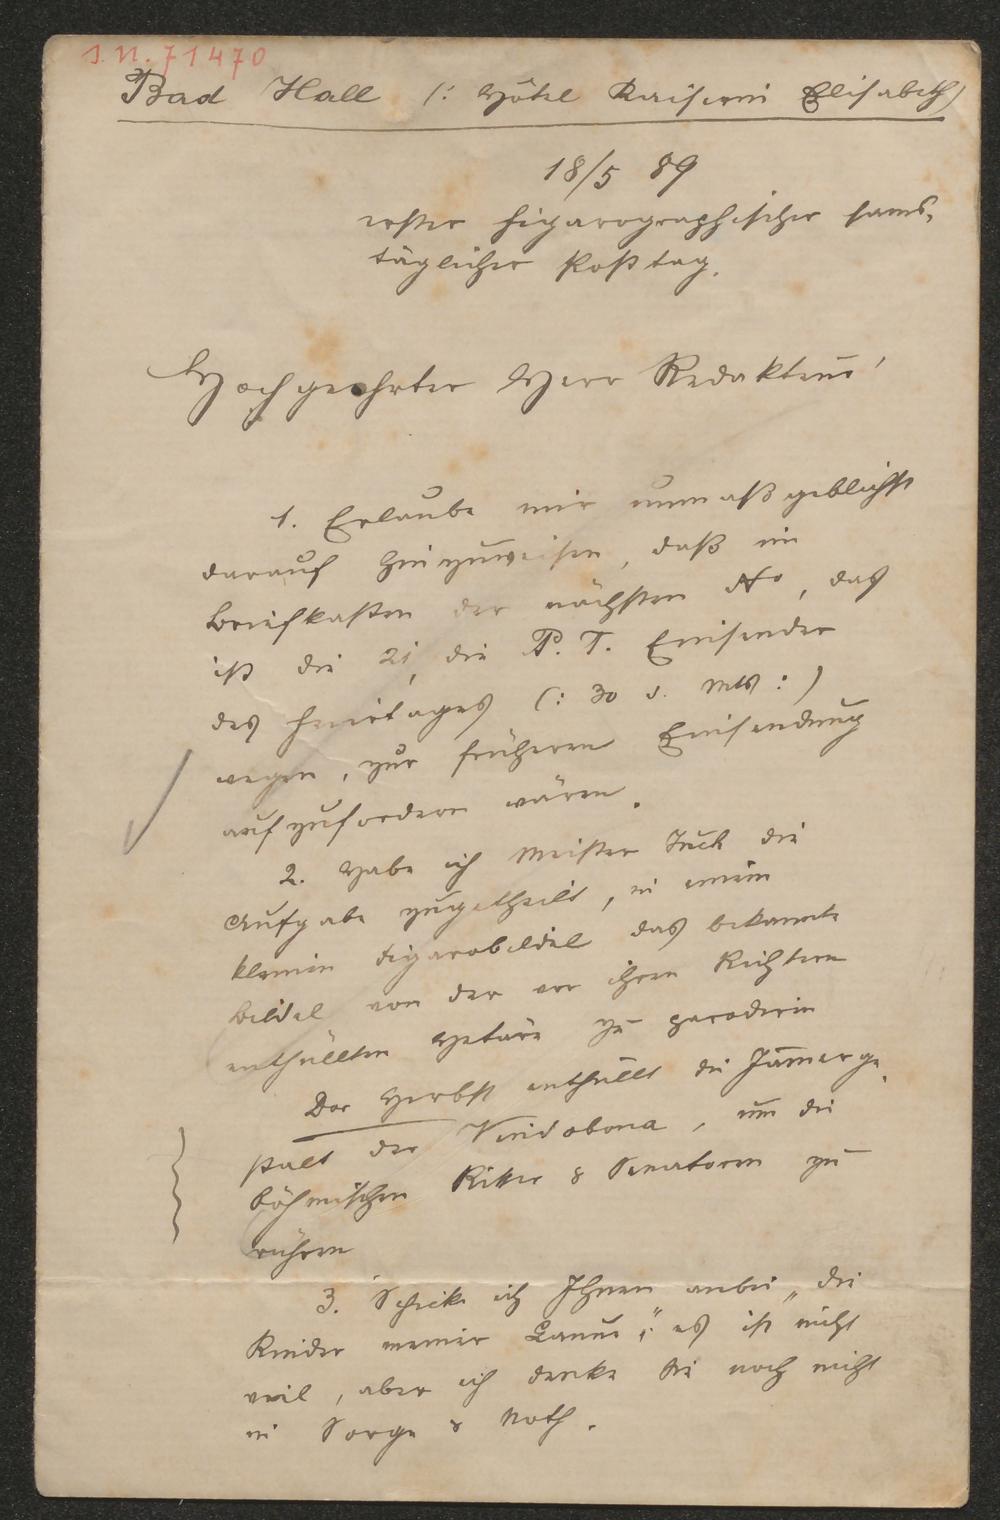 J. N. 71470
Bad Hall (: Hôtel Kaiserin Elisabeth)
18/5 89
erster figarographischer sams-
täglicher Posttag.
Hochgeehrter Herr Redakteur!
1. Erlaube mir unmaßgeblichst
darauf hinzuweisen, daß im
Briefkasten der nächsten No, das
ist die 21, die P. T. Einsender
des Feiertages (: 30 d. Mts :)
wegen, zur früheren Einsendung
aufzufordern wären.
2. Habe ich Meister Juch die
Aufgabe zugetheilt, in einem
kleinen Figarobildel das bekannte
Bildel von der vor ihren Richtern
enthüllten Hetäre zu parodiren
Der Herbst enthüllt die Jam̅erge-
stalt der Vindobona, um die
böhmischen Ritter & Senatoren zu
rühren
3. Schicke ich Ihnen anbei „die
Kinder meiner Laune“; es ist nicht
viel, aber ich denke Sie noch nicht
in Sorge & Noth.